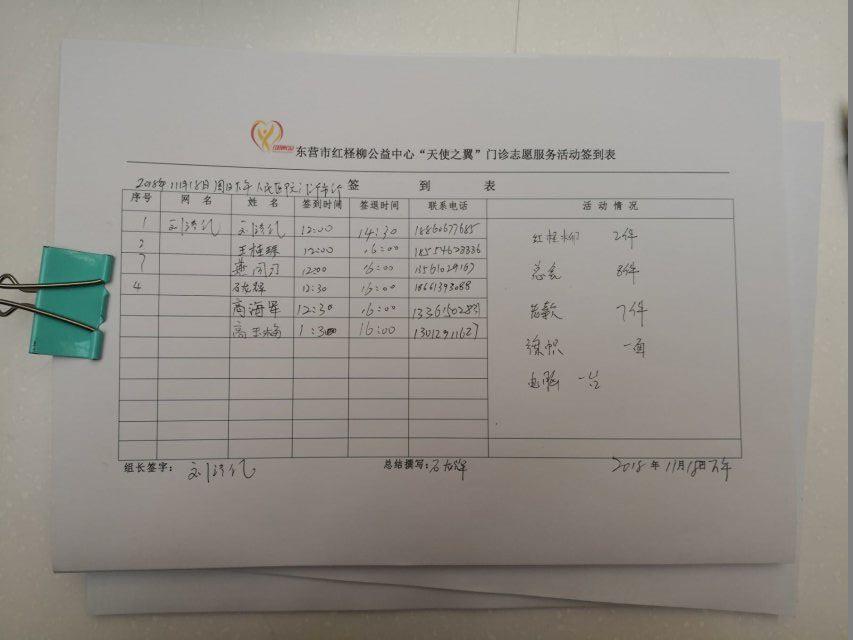 东营市红柽柳公益中心“天使之翼”门诊志愿服务活动签到表
2018年11月18日周日下午人民医院 签到表
序号 网名 姓名 签到时间 签退时间 联系电话 活动情况
1 12:00 14:30 18860677685
2 王桂臻 12:00 16:00 18554623336
12:00 16:00
4 石龙辉 12:30 16:00 18661393088
商海军 12:30 16:00
高玉梅 1:30 16:00
红柽柳 2件
总会 8件
7件
一面
电脑 一台
组长签字:
总结撰写:石龙辉
2018年11月18日下午